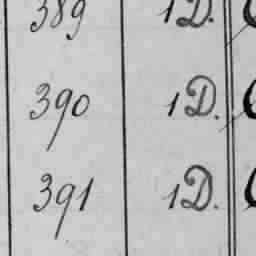 389 1D.
390 1D.
391 1D.